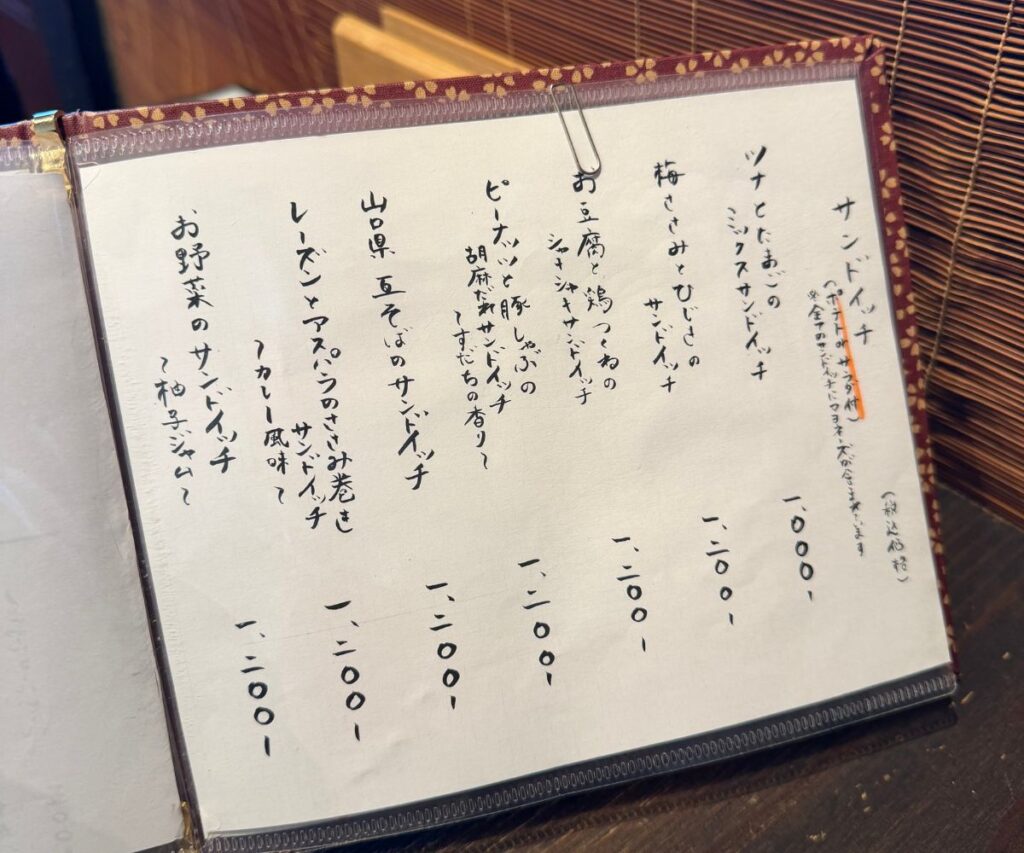 サンドイッチ
(税込価格)
(ポテトorサラダ付)
※全てのサンドイッチにマヨネーズが含まれています
ツナとたまごの
ミックスサンドイッチ
一、000-
梅ささみとひじきの
サンドイッチ
一、二00-
お豆腐と鶏つくねの
シャキシャキサンドイッチ
一、二00-
ピーナッツと豚しゃぶの
胡麻だれサンドイッチ
～すだちの香り～
一、二00-
山口県 瓦そばのサンドイッチ
一、二00-
レーズンとアスパラのささみ巻き
サンドイッチ
～カレー風味～
一、二00-
お野菜のサンドイッチ
～柚子ジャム～
一、二00-